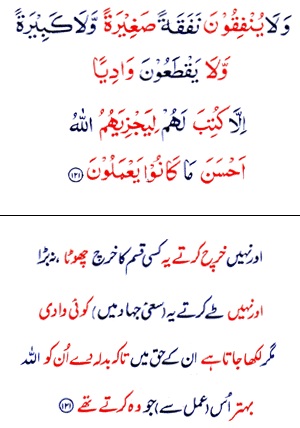 وَلَا يُنْفِقُوْنَ نَفَقَةً صَغِيْرَةً وَّلَا كَبِيْرَةً
وَّلَا يَقْطَعُوْنَ وَادِيًا
اِلَّا كُتِبَ لَهُمْ لِيَجْزِيَهُمُ اللهُ
اَحْسَنَ مَا كَانُوْا يَعْمَلُوْنَ ﴿۱۲۱﴾
اورنہیں خرچ کرتے یہ کسی قسم کا خرچ چھوٹا ،نہ بڑا
اورنہیں طے کرتے یہ (سعئ جہاد میں) کوئی وادی
مگر لکھا جاتا ہے ان کے حق میں تاکہ بدلہ دے اُن کو اللہ
بہتر اُس (عمل سے) جو وہ کرتے تھے ﴿۱۲۱﴾